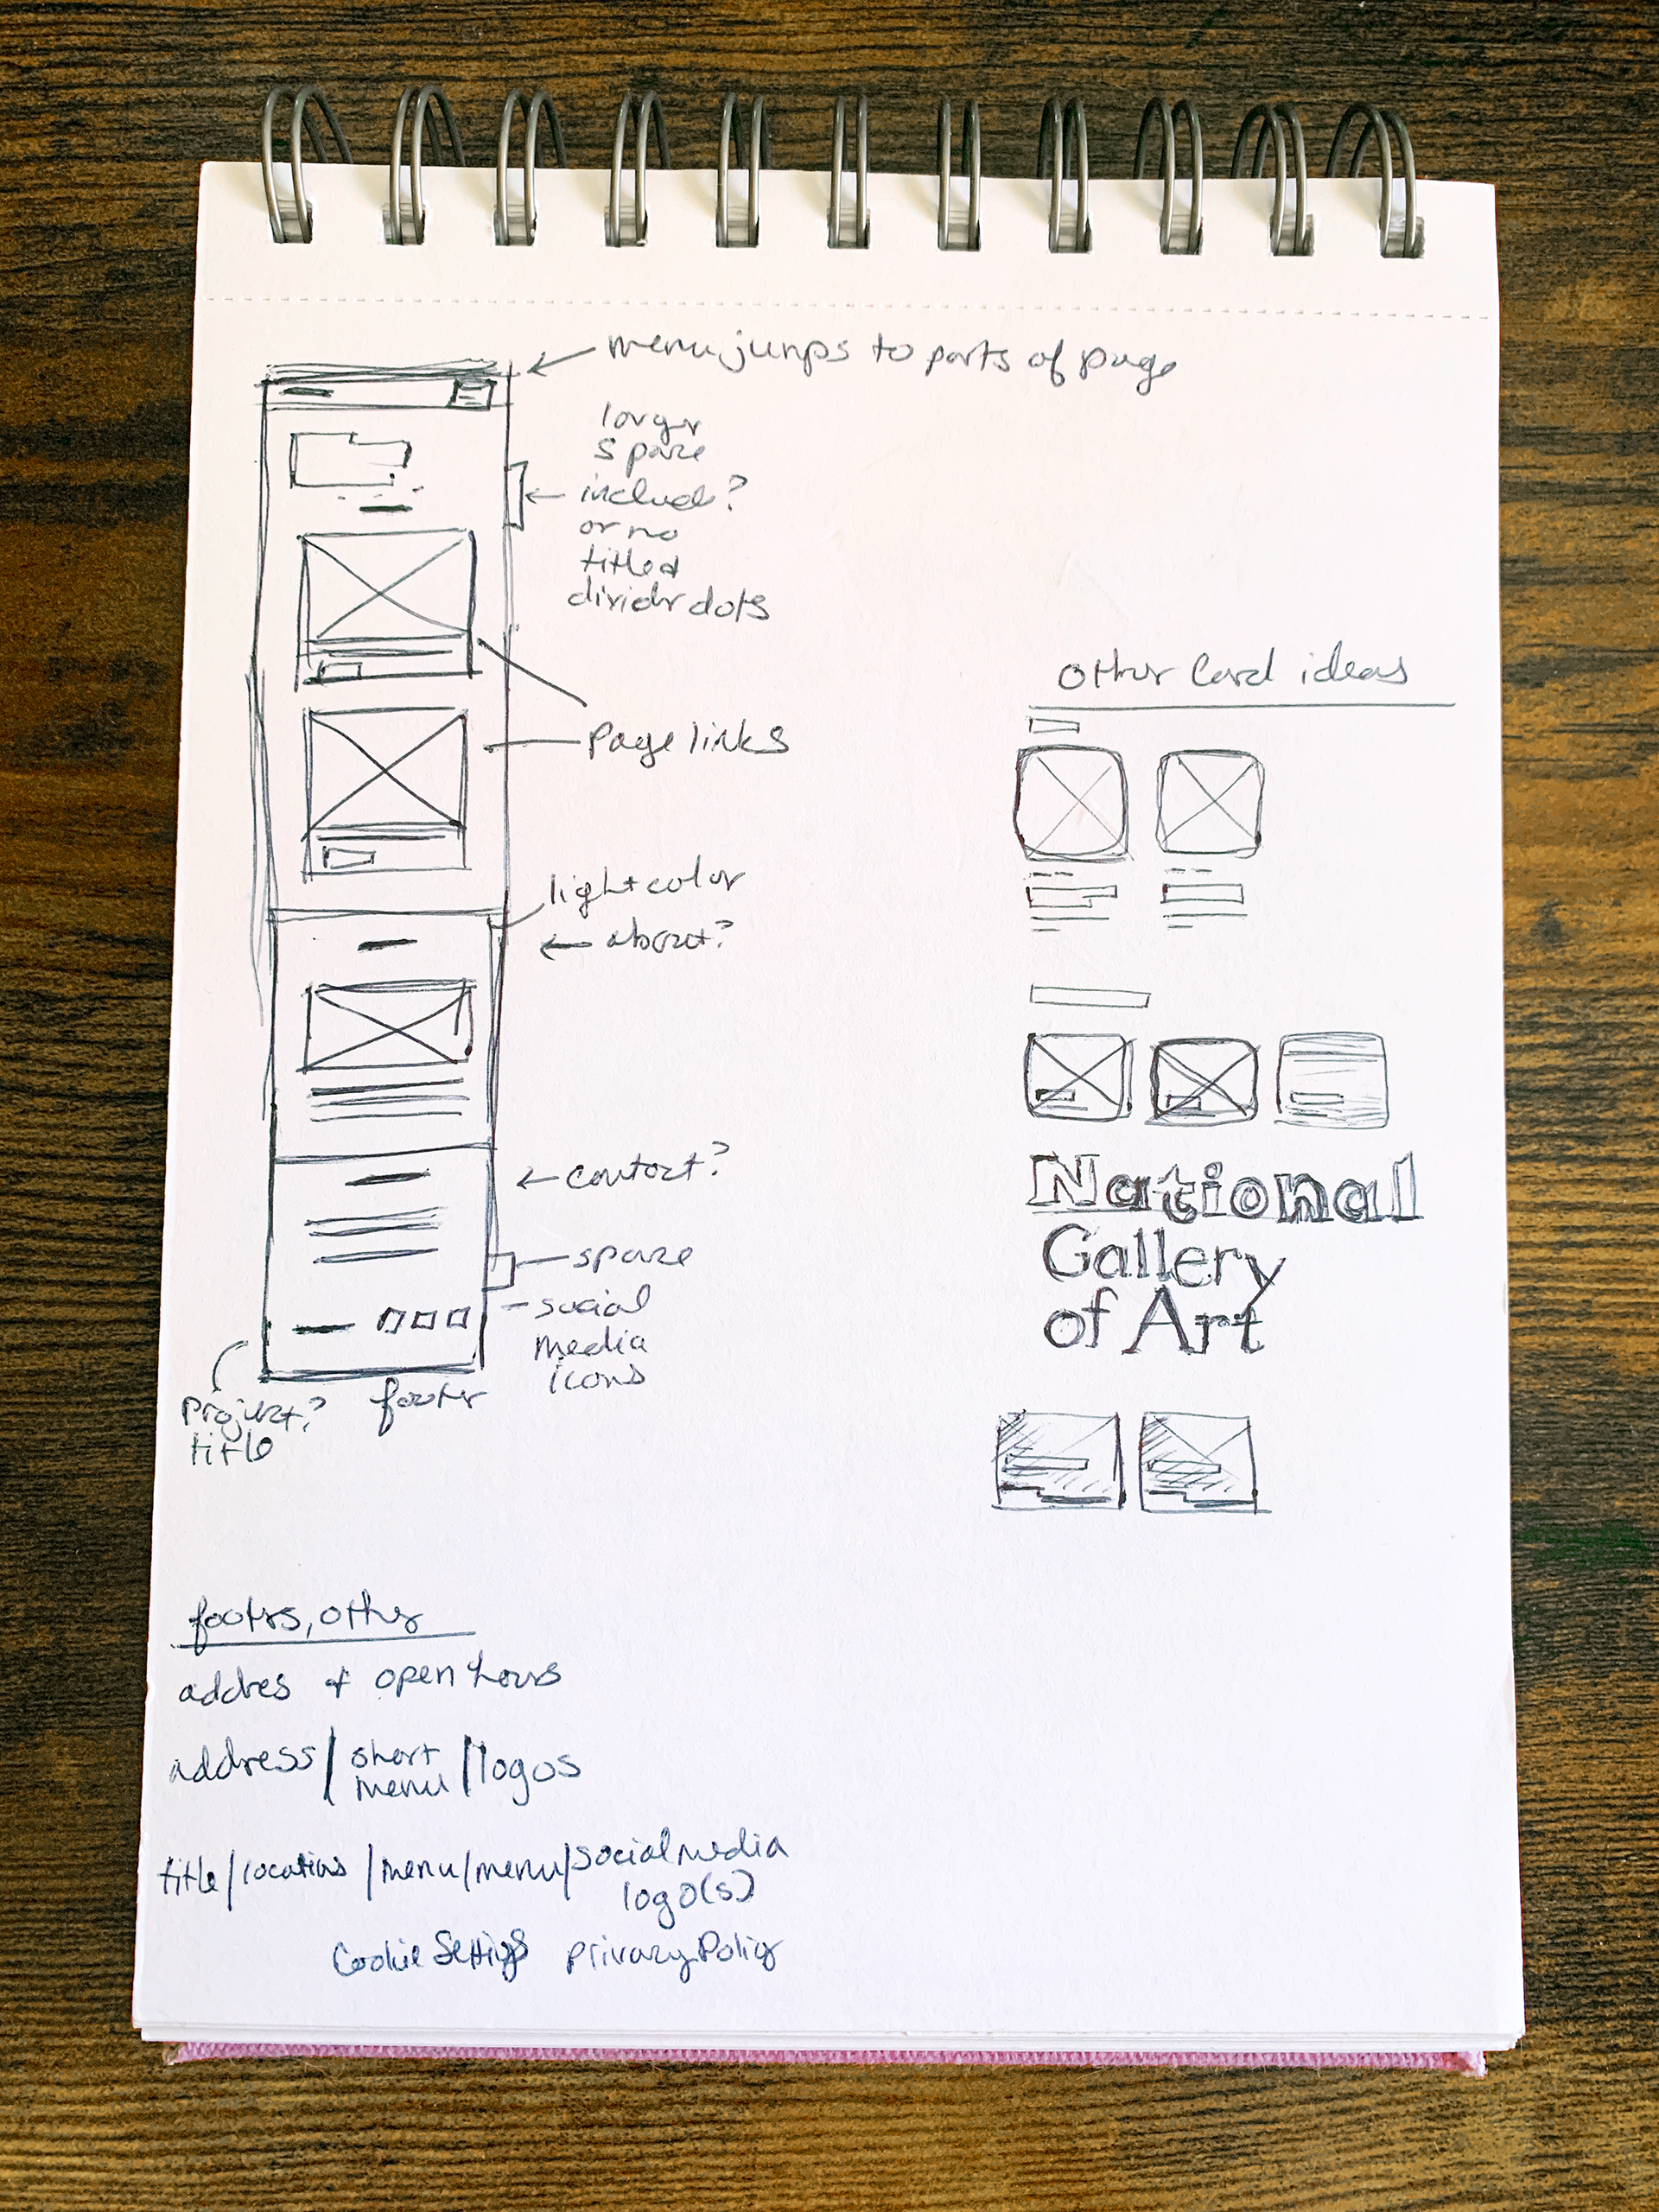 menu jumps to parts of page
larger
space
include?
or no
titled
divider dots
page links
light color
about?
contact?
space
social
media
icons
footer
Projekt?
title
other Card ideas
National
Gallery
of Art
footers, other
addres & open hours
address / short menu / logos
title / locations / menu / menu / social media
logo(s)
Cookie Settings privacy Policy